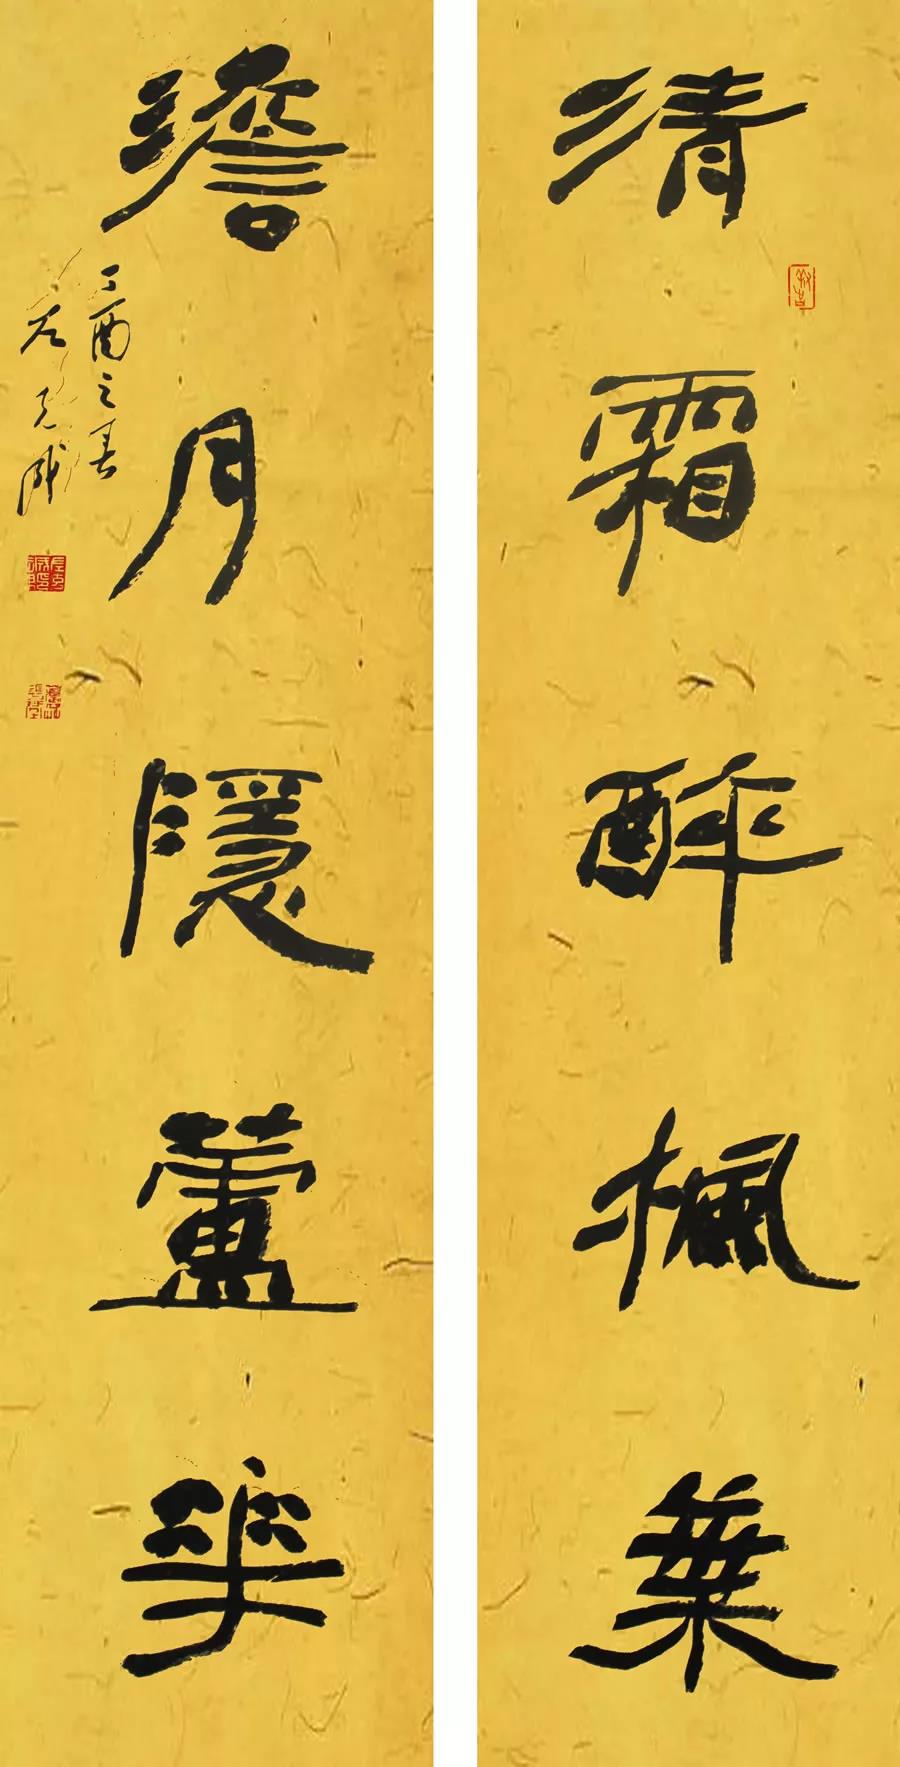 清霜醉楓葉
澹月隱蘆花
丁酉之春
左克成